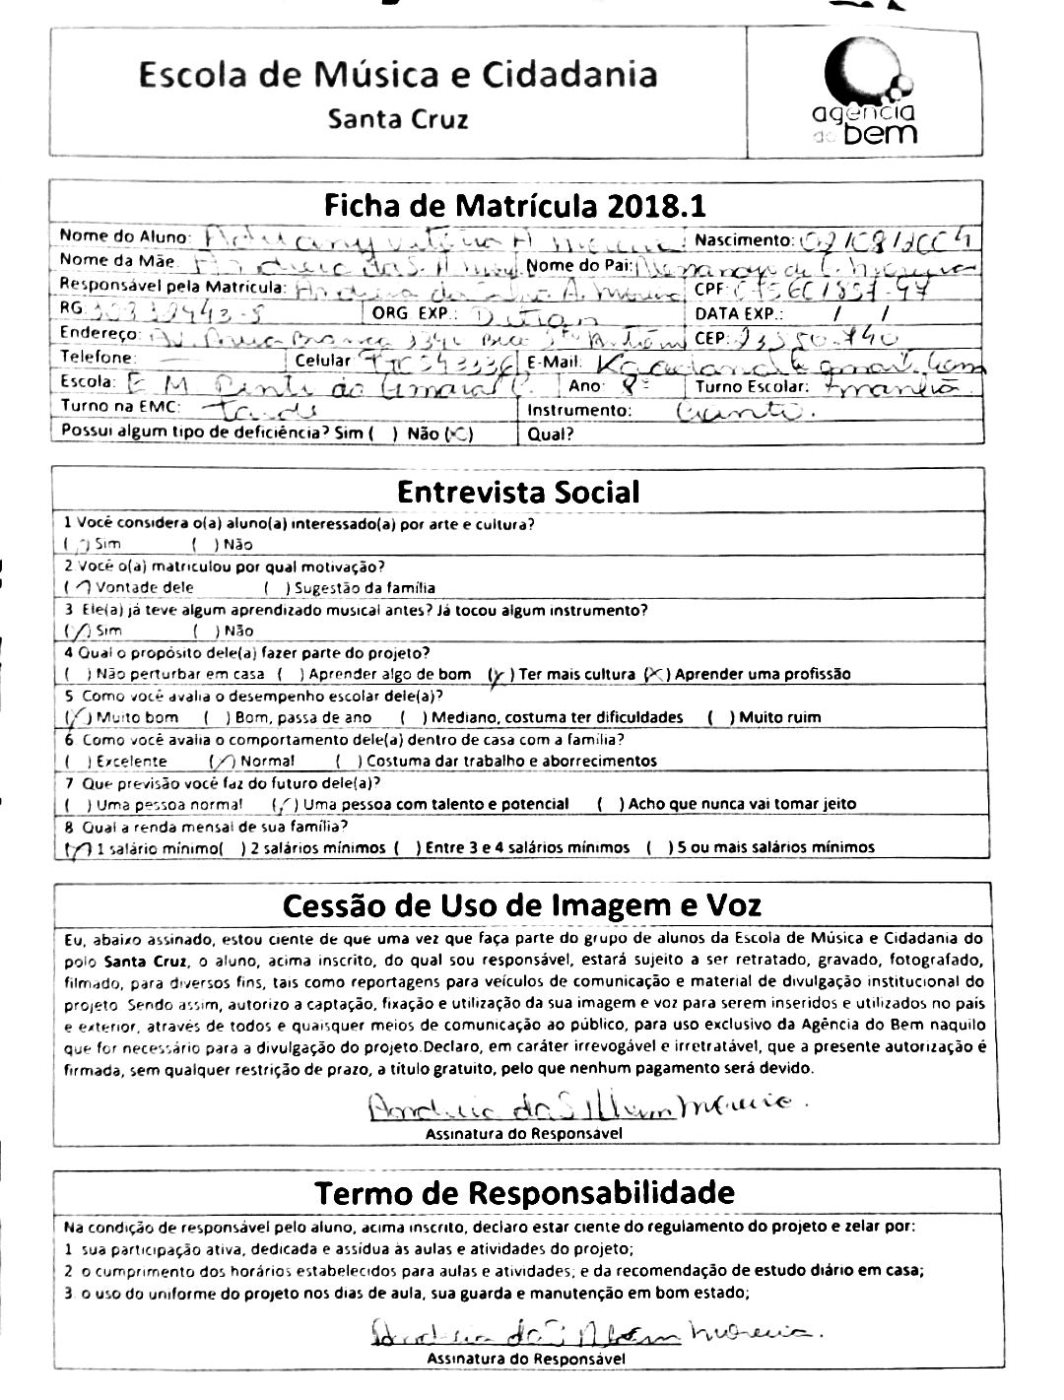 Escola de Música e Cidadania
Santa Cruz
agência
do bem
Ficha de Matrícula 2018.1
Nome do Aluno: Nascimento:
Nome da Mãe Nome do Pai:
Responsável pela Matrícula: CPF
RG ORG EXP.: Detran DATA EXP.: / /
Endereço: CEP:
Telefone: Celular E-Mail:
Escola: E M Ano: 8º Turno Escolar: manhã
Turno na EMC: Tarde Instrumento: Canto.
Possui algum tipo de deficiência? Sim ( ) Não (X) Qual?
Entrevista Social
1 Você considera o(a) aluno(a) interessado(a) por arte e cultura?
(/) Sim ( ) Não
2 Você o(a) matriculou por qual motivação?
(/) Vontade dele ( ) Sugestão da família
3 Ele(a) já teve algum aprendizado musical antes? Já tocou algum instrumento?
(/) Sim ( ) Não
4 Qual o propósito dele(a) fazer parte do projeto?
( ) Não perturbar em casa ( ) Aprender algo de bom (x) Ter mais cultura (x) Aprender uma profissão
5 Como você avalia o desempenho escolar dele(a)?
(/) Muito bom ( ) Bom, passa de ano ( ) Mediano, costuma ter dificuldades ( ) Muito ruim
6 Como você avalia o comportamento dele(a) dentro de casa com a família?
( ) Excelente (/) Normal ( ) Costuma dar trabalho e aborrecimentos
7 Que previsão você faz do futuro dele(a)?
( ) Uma pessoa normal (/) Uma pessoa com talento e potencial ( ) Acho que nunca vai tomar jeito
8 Qual a renda mensal de sua família?
(/) 1 salário mínimo( ) 2 salários mínimos ( ) Entre 3 e 4 salários mínimos ( ) 5 ou mais salários mínimos
Cessão de Uso de Imagem e Voz
Eu, abaixo assinado, estou ciente de que uma vez que faça parte do grupo de alunos da Escola de Música e Cidadania do
polo Santa Cruz, o aluno, acima inscrito, do qual sou responsável, estará sujeito a ser retratado, gravado, fotografado,
filmado, para diversos fins, tais como reportagens para veículos de comunicação e material de divulgação institucional do
projeto Sendo assim, autorizo a captação, fixação e utilização da sua imagem e voz para serem inseridos e utilizados no país
e exterior, através de todos e quaisquer meios de comunicação ao público, para uso exclusivo da Agência do Bem naquilo
que for necessário para a divulgação do projeto.Declaro, em caráter irrevogável e irretratável, que a presente autorização é
firmada, sem qualquer restrição de prazo, a título gratuito, pelo que nenhum pagamento será devido.
Assinatura do Responsável
Termo de Responsabilidade
Na condição de responsável pelo aluno, acima inscrito, declaro estar ciente do regulamento do projeto e zelar por:
1 sua participação ativa, dedicada e assídua às aulas e atividades do projeto;
2 o cumprimento dos horários estabelecidos para aulas e atividades, e da recomendação de estudo diário em casa;
3 o uso do uniforme do projeto nos dias de aula, sua guarda e manutenção em bom estado;
Assinatura do Responsável